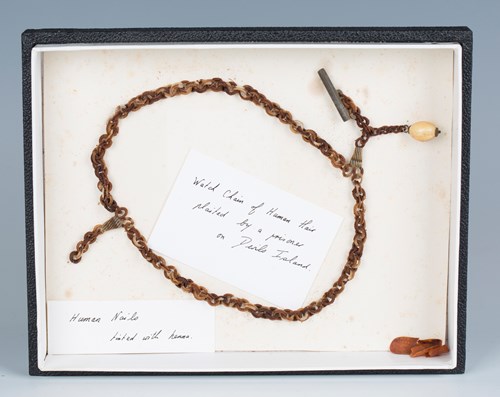 Watch Chain of Human Hair
plaited by a prisoner
on Devils Island
Human Nails
tinted with henna.